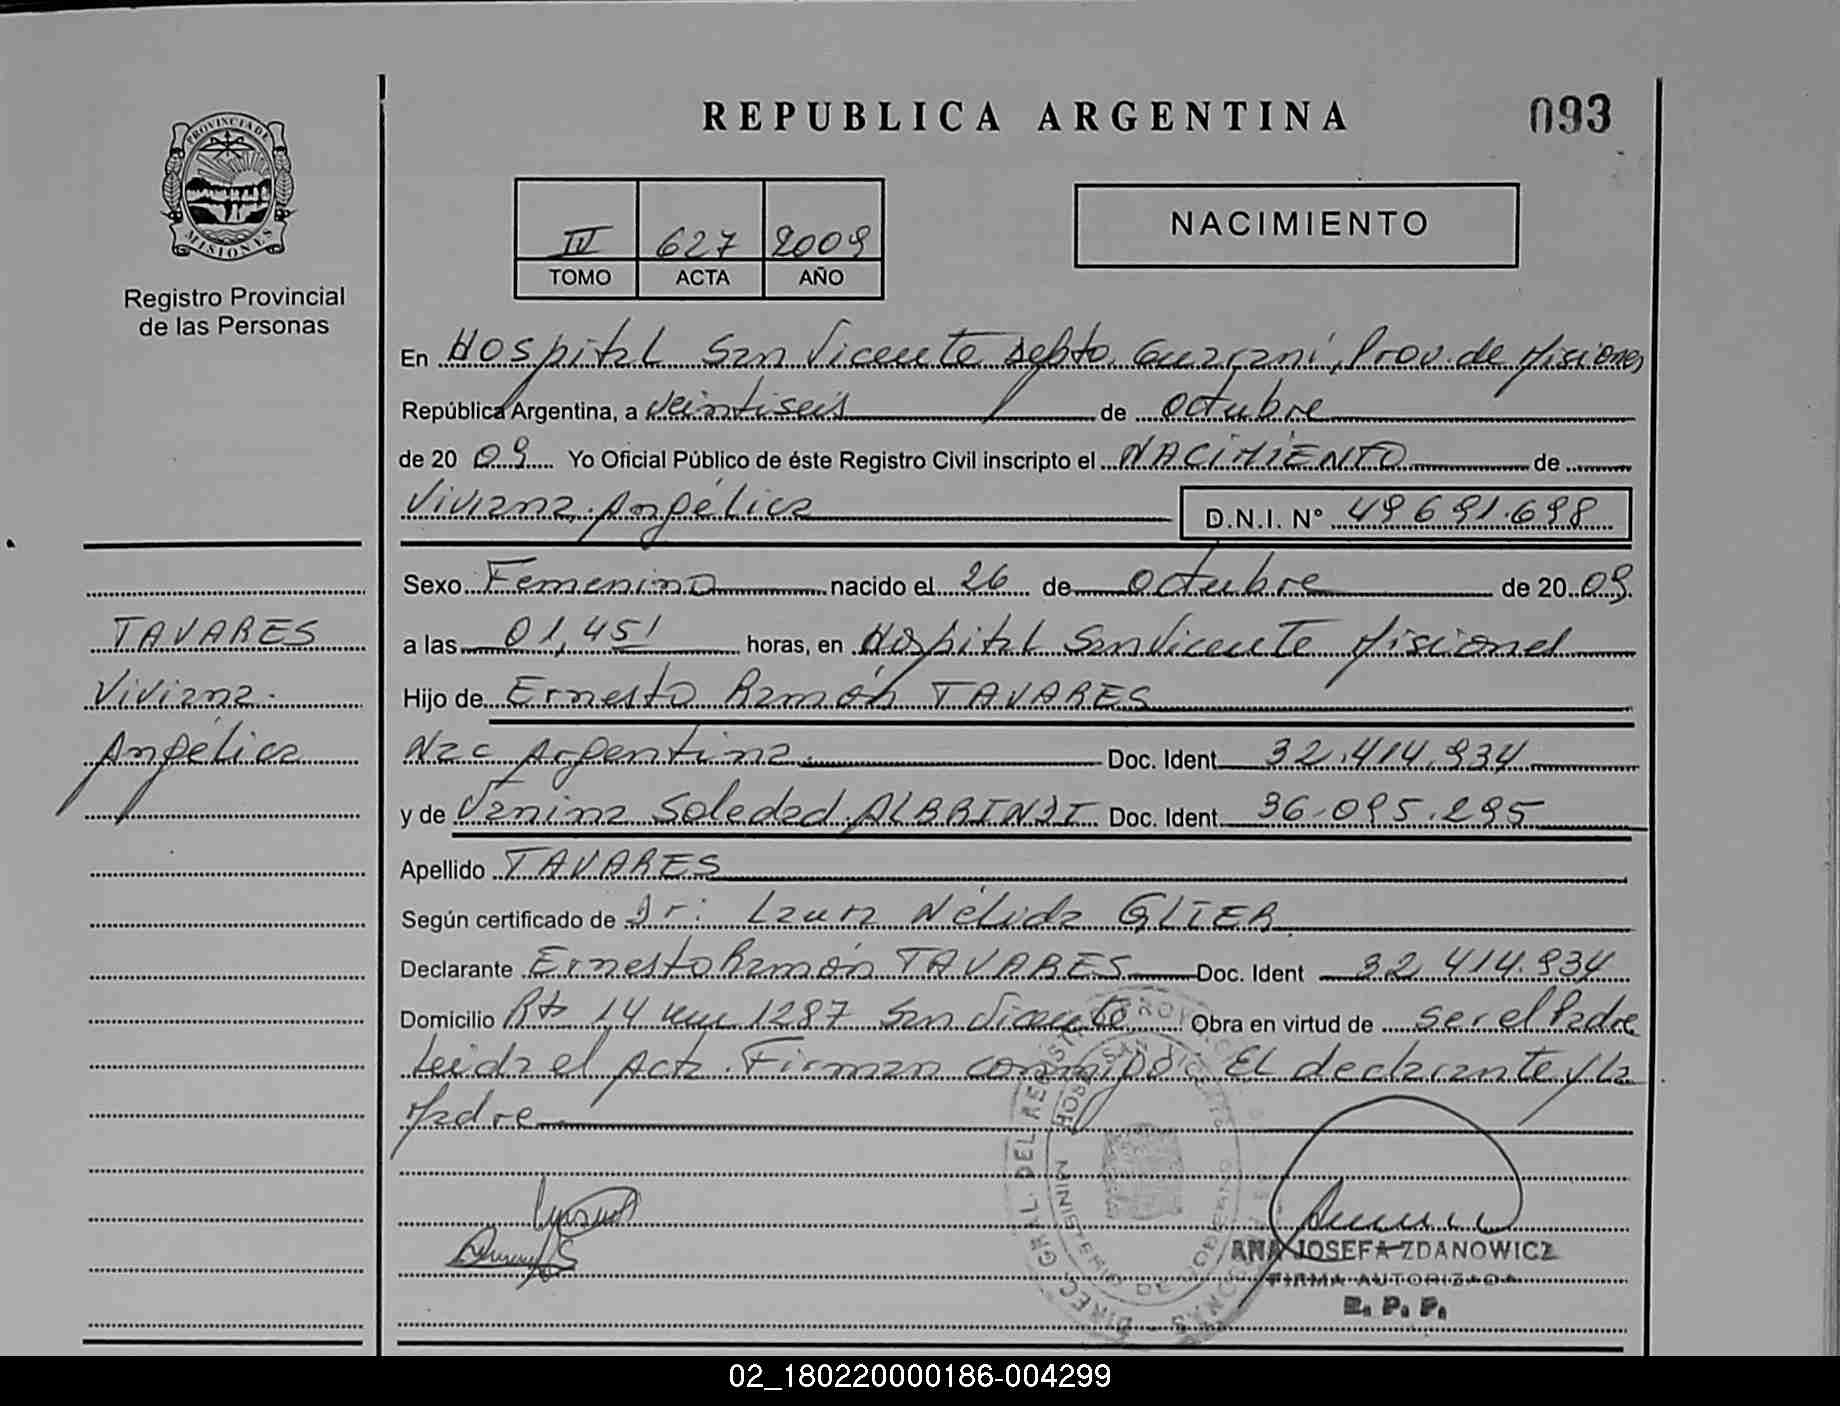 REPUBLICA ARGENTINA
093
PROVINCIA DE
MISIONES
Registro Provincial
de las Personas
IV 627 2009
TOMO ACTA AÑO
NACIMIENTO
En Hospital San Vicente depto. Guaraní, Prov. de Misiones
República Argentina, a veintiseis de octubre
de 20 09 Yo Oficial Público de éste Registro Civil inscripto el NACIMIENTO de
Viviana Angélica D.N.I. Nº 49691.698
Sexo Femenino nacido el 26 de octubre de 20 09.
a las 01,45' horas, en Hospital San Vicente Misiones
Hijo de Ernesto Ramón TAVARES
Nac Argentina Doc. Ident 32.414.934
y de Vanina Soledad ALBRINDI Doc. Ident 36.095.295
Apellido TAVARES
Según certificado de Dr: Laura Nélida GLIER
Declarante Ernesto Ramón TAVARES Doc. Ident 32.414.934
Domicilio Rta 14 km 1287 San Vicente Obra en virtud de ser el Padre
Leida el Acta. Firman conmigo: El declarante y la
Madre
TAVARES
Viviana
Angélica
DIREC. GRAL. DEL REGISTRO PROV.
MINISTERIO DE GOBIERNO
HOSP. SAN VICENTE
ANA JOSEFA ZDANOWICZ
FIRMA AUTORIZADA
R. P. P.
02_180220000186-004299